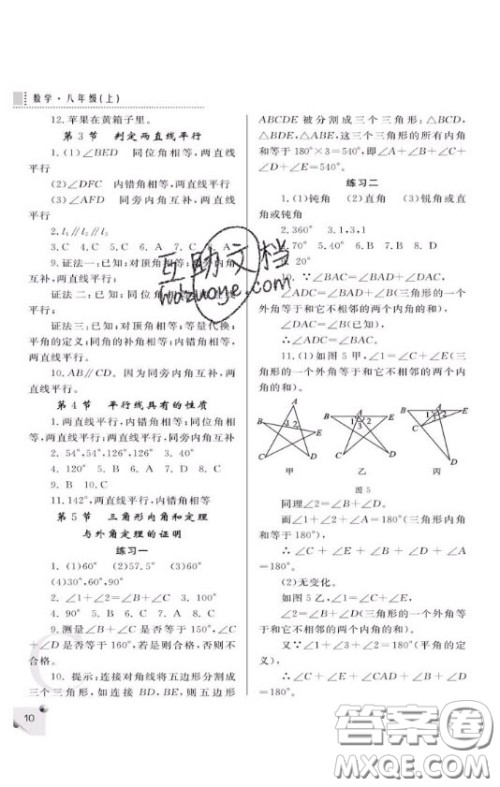 数学·八年级(上)
12.苹果在黄箱子里。
第3节 判定两直线平行
1.(1)∠BED 同位角相等,两直线平行
(2)∠DFC 内错角相等,两直线平行
(3)∠AFD 同旁内角互补,两直线平行
2.l₁∥l₂∥l₃
3.C 4.A 5.C 6.C 7.C 8.A
9.证法一:已知;对顶角相等;同旁内角互补,两直线平行;
证法二:已知;对顶角相等;
证法三:已知;对顶角相等;等量代换;
平角的定义;同角的补角相等;内错角相等,
两直线平行。
10.AB∥CD。因为同旁内角互补,两直线平行。
第4节 平行线具有的性质
1.两直线平行,内错角相等;同位角相等,两直线平行;两直线平行,同旁内角互补
2.54°,54°,126°,126° 3.40°
4.120° 5.B 6.D 7.A 8.C
9.B 10.C
11.142°,两直线平行,内错角相等
第5节 三角形内角和定理
与外角定理的证明
练习一
1.(1)60° (2)57.5° (3)60°
(4)30°,60°,90° 2.C 3.100°
4.90° 5.D 6.C 7.B 8.A
9.测量∠B+∠C是否等于150°,∠C+∠D是否等于160°,若是则合格,否则不合格。
10.提示:连接对角线将五边形分割成三个三角形,如连接BD,BE,则五边形
10
ABCDE被分割成三个三角形:△BCD,
△BDE,△ABE,这三个三角形的所有内角和等于180°×3=540°,即∠A+∠B+∠C+∠D+∠E=540°。
练习二
1.(1)钝角 (2)直角 (3)锐角或直角或钝角
2.360° 3.1,3,1
70° 5.40° 6.B 7.B 8.D
20°
10.∵∠BAC=∠BAD+∠DAC,
∠ADC=∠B+∠BAD(三角形的一个外角等于和它不相邻的两个内角的和),
∠DAC=∠B(已知),
∴∠ADC=∠BAC。
11.(1)如图5甲,∠1=∠C+∠E(三角形的一个外角等于和它不相邻的两个内角的和)。
A B C D E 1 2
甲
B A E C D 1 2 3
乙
A B E C D 1 2 3
丙
图5
同理∠2=∠B+∠D。
而∠1+∠2+∠A=180°(三角形内角和等于180°),
∴∠C+∠E+∠B+∠D+∠A=180°。
(2)无变化。
如图5乙,∵∠1=∠C+∠E,
∠2=∠B+∠D(三角形的一个外角等于和它不相邻的两个内角的和)。
又∵∠1+∠2+∠3=180°(平角的定义),
∴∠B+∠CAD+∠C+∠D+∠E=180°。
互助文档
hdzuone.com
答案卷